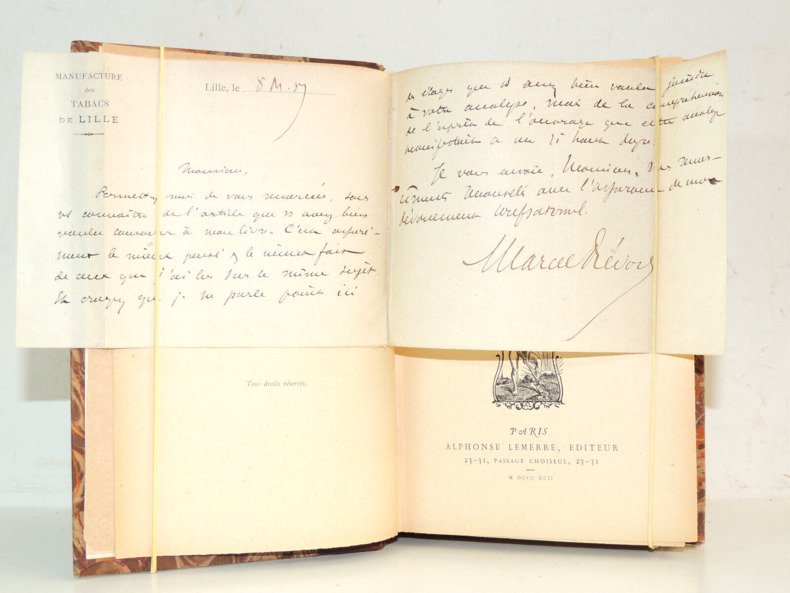 MANUFACTURE
des
TABACS
DE LILLE
Lille, le 8 M. 87
Monsieur,
Permettez moi de vous remercier, sans
vs connaître, de l'article que vs avez bien
voulu consacrer à mon livre. C'est assuré-
ment le mieux pensé & le mieux fait
de ceux que j'ai lus sur le même sujet.
Et croyez que je ne parle point ici
des éloges que vs avez bien voulu joindre
à votre analyse, mais de la compréhension
de l'esprit de l'ouvrage que cette analyse
manifestait à un si haut degré.
Je vous envoie, Monsieur, mes remer-
ciements avec l'assurance de mon
dévouement
Marcel Prévost
Tous droits réservés.
PARIS
ALPHONSE LEMERRE, EDITEUR
23-31, PASSAGE CHOISEUL, 23-31
M DCCC XCII